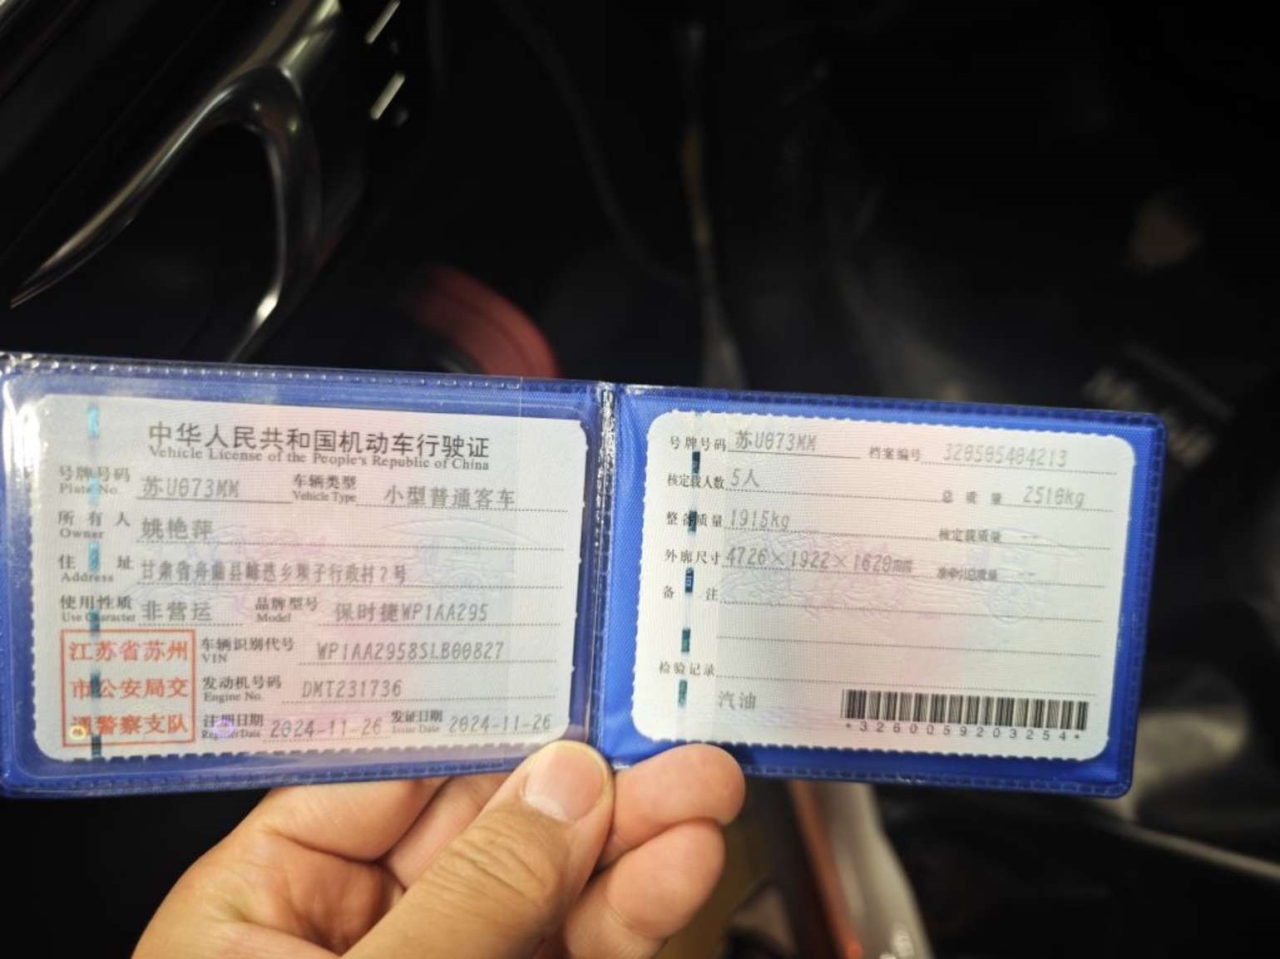 中华人民共和国机动车行驶证
Vehicle License of the People's Republic of China
号牌号码 苏U073MM 车辆类型 小型普通客车
Plate No. Vehicle Type
所有人 姚艳萍
Owner
住址 甘肃省舟曲县 乡坝子行政村2号
Address
使用性质 非营运 品牌型号 保时捷WP1AA295
Use Character Model
江苏省苏州
市公安局交
通警察支队
车辆识别代号 WP1AA2958SLB00827
VIN
发动机号码 DMT231736
Engine No.
注册日期 2024-11-26 发证日期 2024-11-26
Register Date Issue Date
号牌号码 苏U073MM 档案编号 320505404213
核定载人数 5人 总质量 2510kg
整备质量 1915kg 核定载质量 --
外廓尺寸 4726×1922×1620mm 准牵引总质量 --
备注
检验记录
汽油
*3260059203254*